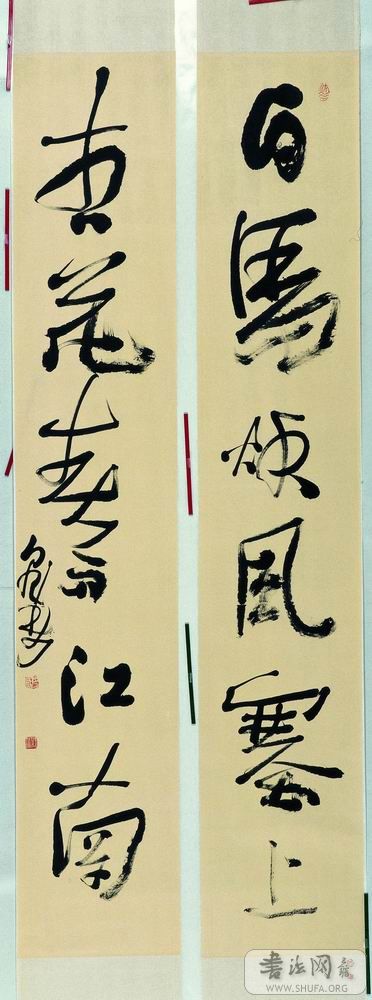 白馬秋風塞上
杏花春雨江南
書法网
WWW.SHUFA.ORG